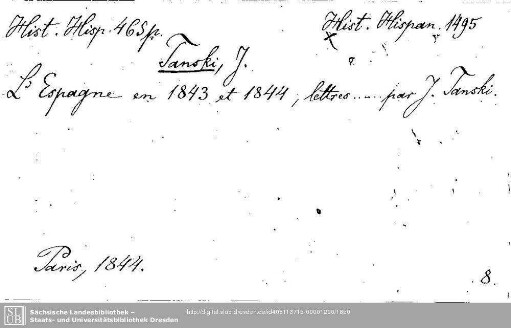 Hist. Hisp. 465p. Hist. Hispan. 1495
Tanski, J.
L'Espagne en 1843 et 1844, lettres..... par J. Tanski.
Paris, 1844.
8.
SLUB
Sächsische Landesbibliothek –
Staats- und Universitätsbibliothek Dresden